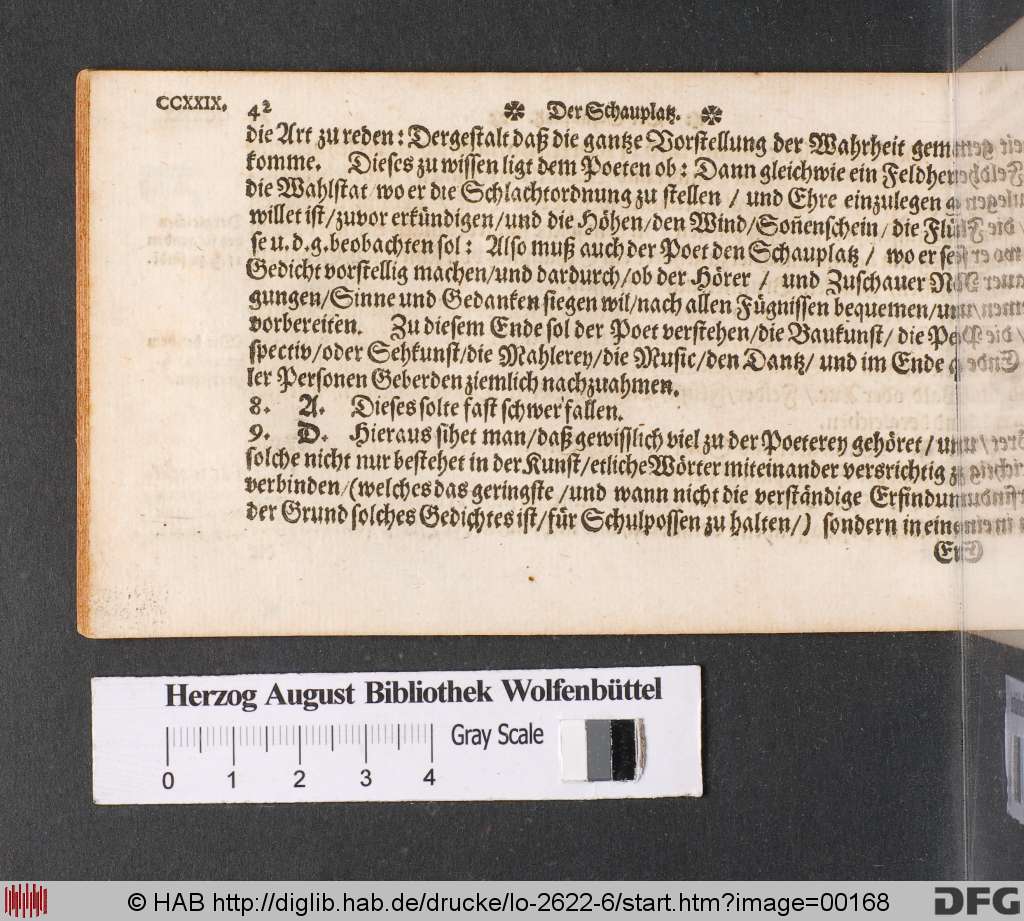 CCXXIX. 42 Der Schauplatz.
die Art zu reden: Dergestalt daß die gantze Vorstellung der Wahrheit gemäß
komme. Dieses zu wissen ligt dem Poeten ob: Dann gleichwie ein Feldherr
die Wahlstat wo er die Schlachtordnung zu stellen / und Ehre einzulegen
willet ist/zuvor erkündigen/und die Höhen/den Wind/Soñenschein/die Flüs-
se u.d.g. beobachten sol: Also muß auch der Poet den Schauplatz / wo er sein
Gedicht vorstellig machen/und dardurch/ob der Hörer / und Zuschauer Nei-
gungen/Sinne und Gedanken siegen wil/nach allen Fügnissen bequemen/und
vorbereiten. Zu diesem Ende sol der Poet verstehen/die Baukunst/ die Per-
spectiv/oder Sehkunst/die Mahlerey/die Music/den Dantz/ und im Ende al-
ler Personen Geberden ziemlich nachzuahmen.
8. A. Dieses solte fast schwer fallen.
9. D. Hieraus sihet man/daß gewisslich viel zu der Poeterey gehöret/und
solche nicht nur bestehet in der Kunst/etliche Wörter miteinander versrichtig zu
verbinden/(welches das geringste/und wann nicht die verständige Erfindung
der Grund solches Gedichtes ist/für Schulpossen zu halten/) sondern in einem
Herzog August Bibliothek Wolfenbüttel
Gray Scale
0 1 2 3 4
© HAB http://diglib.hab.de/drucke/lo-2622-6/start.htm?image=00168
DFG